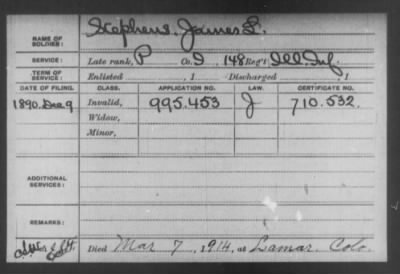 NAME OF SOLDIER: Stephens, James L.
SERVICE: Late rank, P Co. D, 148 Reg't Ill. Inf.
TERM OF SERVICE: Enlisted , 1 Discharged , 1
DATE OF FILING. CLASS. APPLICATION NO. LAW. CERTIFICATE NO.
1890. Dec 9 Invalid, 995.453 J 710.532.
Widow,
Minor,
ADDITIONAL SERVICES:
REMARKS:
Died Mar 7, 1914, at Lamar, Colo.